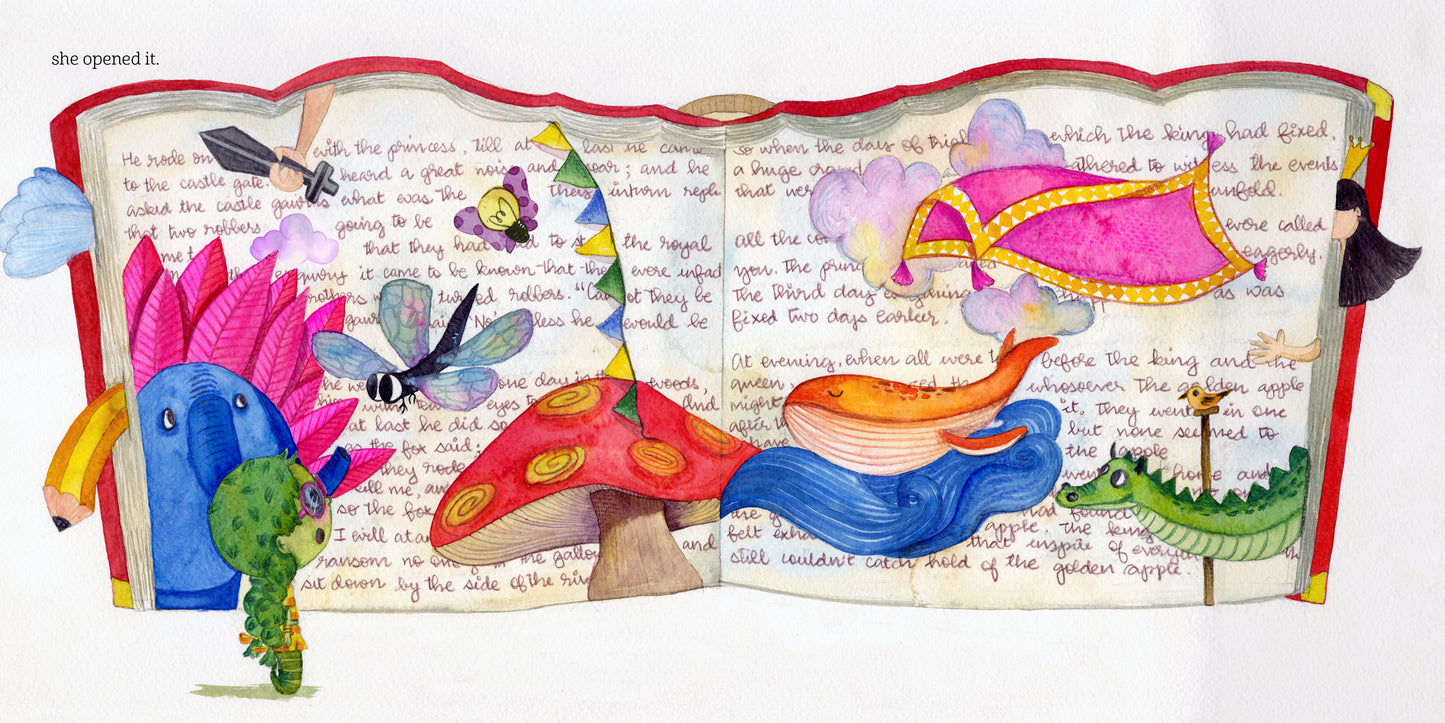 she opened it.
He rode on with the princess, till at last he came
to the castle gate. heard a great nois and roar; and he
asked the castle what was the They inturn repl
that two robbers going to be
me that they had to st the royal
enquiry it came to be known that the were infact
rothers turned robbers. " not they be
No less he would be
he we one day in th woods,
him eyes to And
at last he did so
as the fox said;
They rode
tell me, an
so the fox
I will at an and
ransom no one in the gallow
sit down by the side of the riv
so when the days of tria which the king had fixed,
a huge crowd gathered to witness the events
that wer unfold.
all the co were called
you. The prin eagerly.
The third day as was
fixed two days earlier.
At evening, when all were before the king and the
queen, whosoever The golden apple
might it. They went in one
after th but none seemed to
have the apple
went home and
the had found
felt exha apple. The king
that inspite of everyt
still couldn't catch hold of the golden apple.